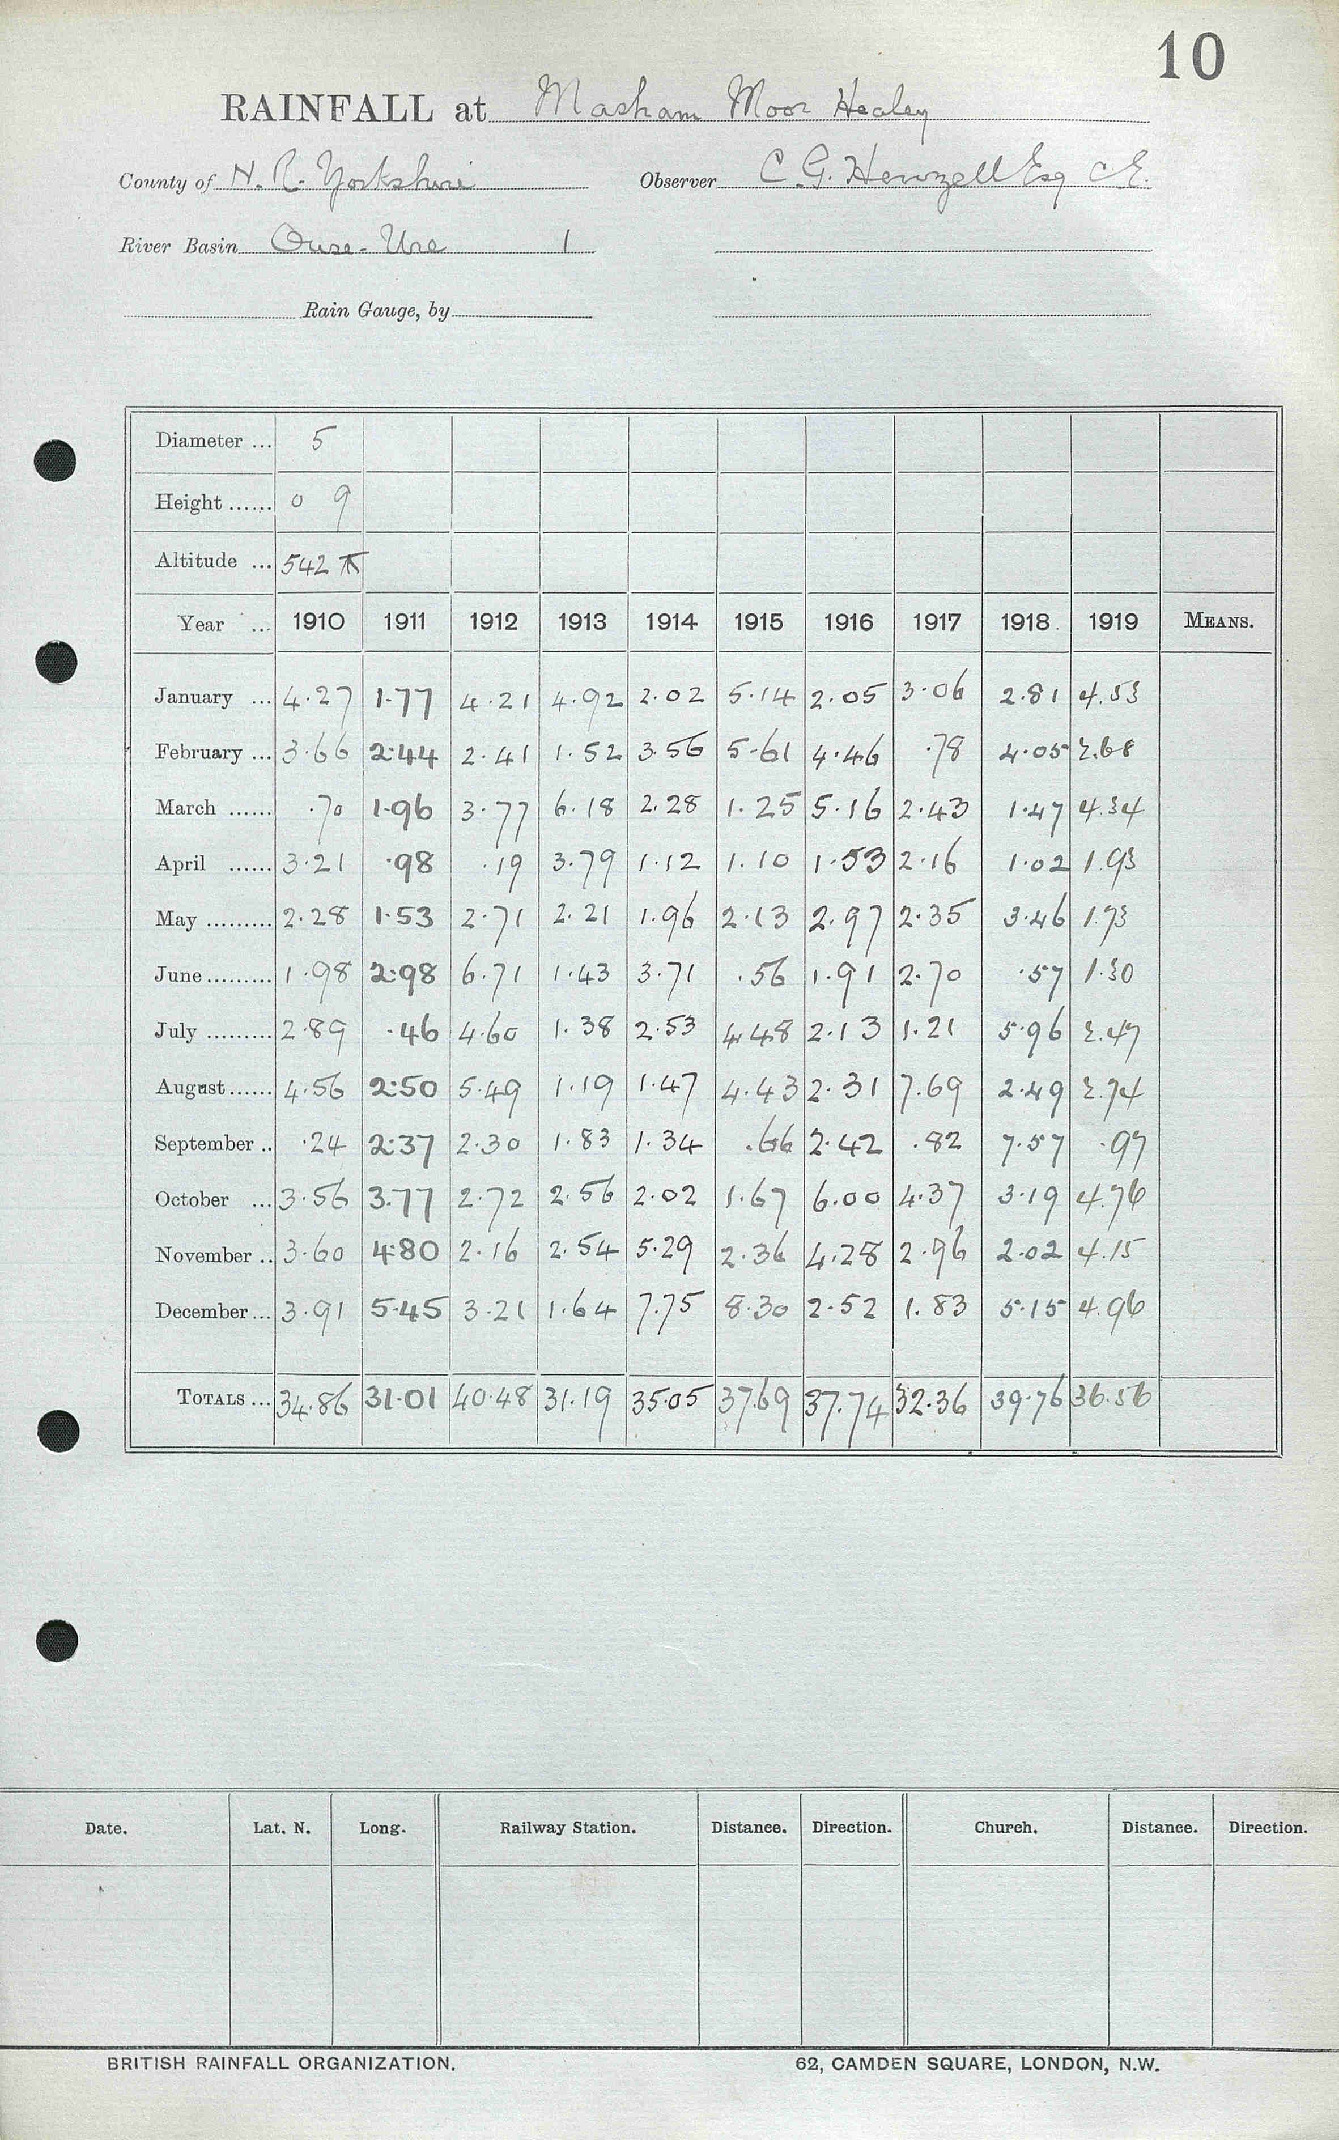 10
RAINFALL at Masham Moor Healey
County of N. R. Yorkshire Observer C. G. Henzell Esq C.E.
River Basin Ouse-Ure 1
Rain Gauge, by
Diameter ... 5
Height ...... 0 9
Altitude ... 542
Year ... 1910 1911 1912 1913 1914 1915 1916 1917 1918. 1919 MEANS.
January ... 4.27 1.77 4.21 4.92 2.02 5.14 2.05 3.06 2.81 4.53
February ... 3.66 2.44 2.41 1.52 3.56 5.61 4.46 .78 4.05 2.68
March ...... .70 1.96 3.77 6.18 2.28 1.25 5.16 2.43 1.47 4.34
April ...... 3.21 .98 .19 3.79 1.12 1.10 1.53 2.16 1.02 1.93
May ......... 2.28 1.53 2.71 2.21 1.96 2.13 2.97 2.35 3.46 1.73
June ......... 1.98 2.98 6.71 1.43 3.71 .56 1.91 2.70 .57 1.30
July ......... 2.89 .46 4.60 1.38 2.53 4.48 2.13 1.21 5.96 2.47
August ...... 4.56 2.50 5.49 1.19 1.47 4.43 2.31 7.69 2.49 2.74
September .. .24 2.37 2.30 1.83 1.34 .66 2.42 .82 7.57 .97
October ... 3.56 3.77 2.72 2.56 2.02 1.67 6.00 4.37 3.19 4.76
November .. 3.60 4.80 2.16 2.54 5.29 2.36 4.28 2.96 2.02 4.15
December ... 3.91 5.45 3.21 1.64 7.75 8.30 2.52 1.83 5.15 4.96
TOTALS ... 34.86 31.01 40.48 31.19 35.05 37.69 37.74 32.36 39.76 36.56
Date. Lat. N. Long. Railway Station. Distance. Direction. Church. Distance. Direction.
BRITISH RAINFALL ORGANIZATION. 62, CAMDEN SQUARE, LONDON, N.W.